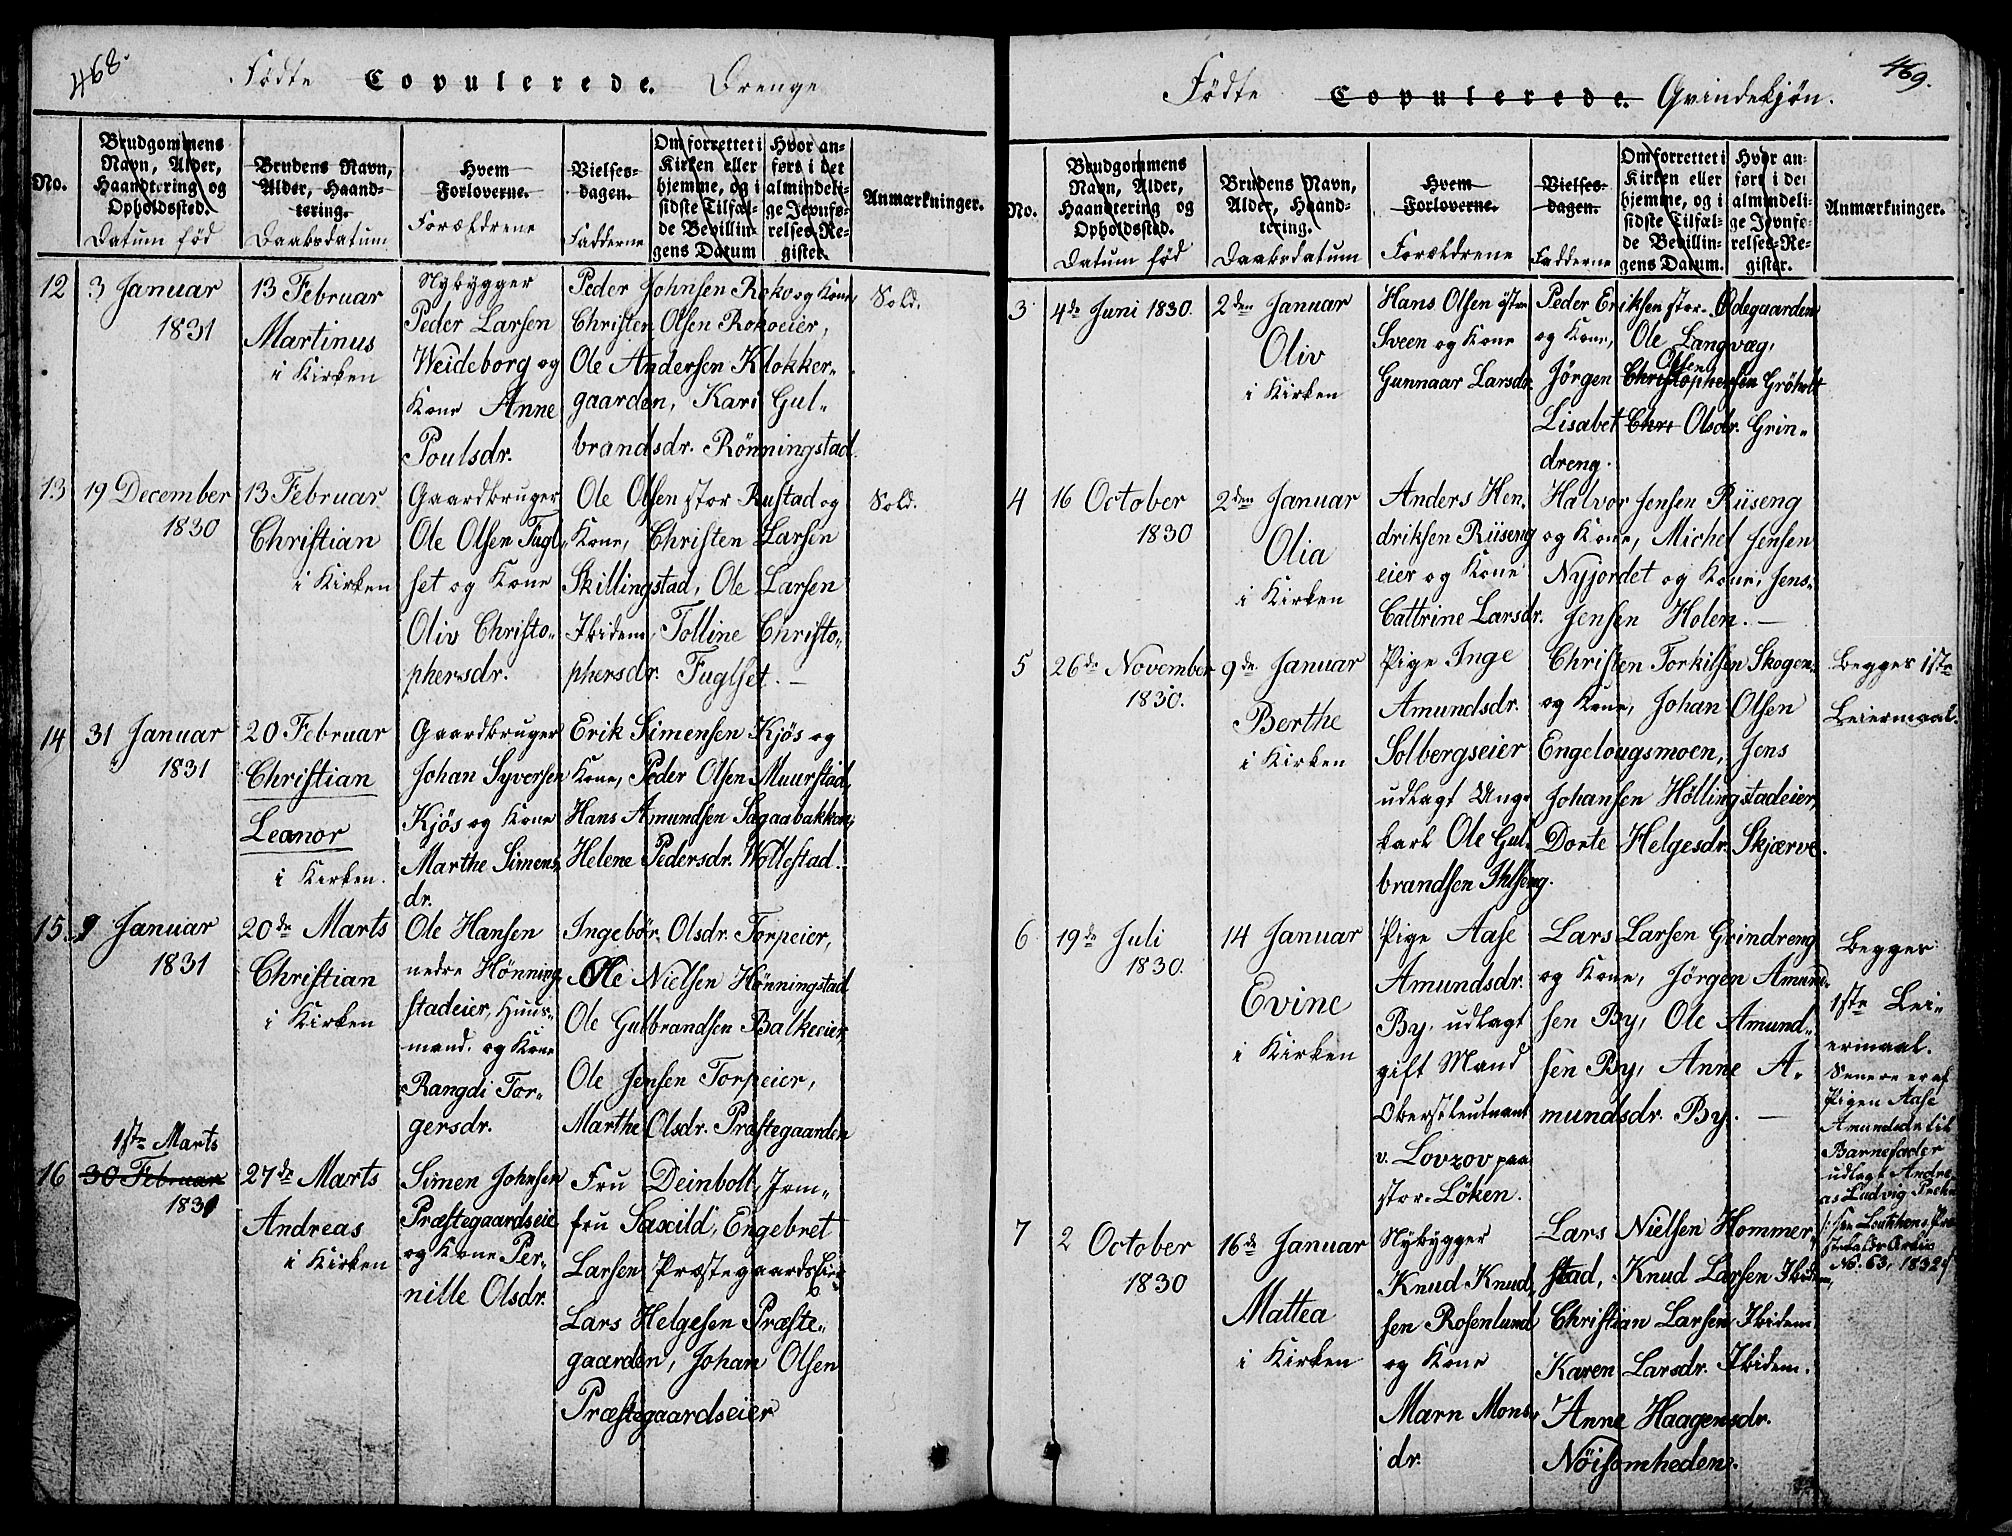 468.
Födte Copulerede. Drenge
No.
Brudgommens
Navn, Alder,
Haandtering og
Opholdssted.
Datum föd
Brudens Navn,
Alder, Haand-
tering.
Daabsdatum
Hvem
Forloverne.
Forældrene
Vielses-
dagen.
Fadderne
Om forrettet i
Kirken eller
hjemme, og i
sidste Tilfæl-
de Bevillin-
gens Datum
Hvor an-
ført i det
almindeli-
ge Jevnfø-
relses-Re-
gister.
Anmærkninger.
12
3 Januar
1831
13 Februar
Martinus
i Kirken
Nybygger
Peder Larsen
Weideborg og
Kone Anne
Poulsdr.
Peder Johnsen Roko og Kone,
Christen Olsen Rokoeier,
Ole Andersen Klokker-
gaarden, Kari Gul-
brandsdr. Rønningstad.
Sold.
13
19 December
1830
13 Februar
Christian
i Kirken
Gaardbruger
Ole Olsen Fugl-
set og Kone
Oliv Christo-
phersdr.
Ole Olsen stor Rustad og
Kone, Christen Larsen
Skillingstad, Ole Larsen
Ibidem, Tolline Christo-
phersdr. Fuglset. —
Sold.
14
31 Januar
1831
20 Februar
Christian
Leanor
i Kirken.
Gaardbruger
Johan Syversen
Kjös og Kone
Marthe Simens
dr.
Erik Simensen Kjös og
Kone, Peder Olsen Muurstad,
Hans Amundsen Sagaabakken,
Helene Pedersdr. Wollestad.
15.
9 Januar
1831
20de Marts
Christian
i Kirken
Ole Hansen
nedre Hönning
stadeier, Huus-
mand. og Kone
Rangdi Tor-
gersdr.
Ingebör. Olsdr. Torpeier,
Ole Nielsen Hönningstad
Ole Gulbrandsen Balkeeier
Ole Jensen Torpeier,
Marthe Olsdr. Præstegaarden
16
1ste Marts
30 Februar
1831
27de Marts
Andreas
i Kirken
Simen Johnsen
Præstegaardseie
og Kone Per-
nille Olsdr.
Fru Deinbolt, Jom-
fru Saxild, Engebret
Larsen Præstegaards
Lars Helgesen Præste-
gaarden, Johan Olsen
Præstegaardseier
469.
Födte Copulerede. Qvindekjön.
No.
Brudgommens
Navn, Alder,
Haandtering og
Opholdssted.
Datum föd
Brudens Navn,
Alder, Haand-
tering.
Daabsdatum
Hvem
Forloverne.
Forældrene
Vielses-
dagen.
Fadderne
Om forrettet i
Kirken eller
hjemme, og i
sidste Tilfæl-
de Bevillin-
gens Datum.
Hvor an-
ført i det
almindeli-
ge Jevnfø-
relses-Re-
gister.
Anmærkninger.
3
4de Juni 1830.
2den Januar
Oliv
i Kirken
Hans Olsen östre
Sveen og Kone
Gunnaar Larsdr.
Peder Eriksen stor-Ödegaarden
og Kone, Ole Langvæg,
Olsen
Jörgen Christophersen Gröholt
Lisabet Chri Olsdr. Grin-
dreng.
4
16 October
1830
2den Januar
Olia
i Kirken
Anders Hen-
driksen Riiseng
eier og Kone
Cattrine Larsdr.
Halvor Jensen Riiseng
og Kone, Michel Jensen
Nyjordet og Kone, Jens-
Jensen Holen. —
5
26de November
1830.
9de Januar
Berthe
i Kirken
Pige Inge
Amundsdr.
Solbergseier
udlagt Ung-
karl Ole Gul-
brandsen Ihlseng.
Christen Torkilsen Skogen
og Kone, Johan Olsen
Engelougsmoen, Jens
Johansen Höllingstadeier,
Dorte Helgesdr. Skjærve.
Begges 1ste
Leiermaal.
6
19de Juli
1830.
14 Januar
Evine
i Kirken
Pige Aase
Amundsdr.
By, udlagt
gift Mand
Oberstleutnant
v. Lovzov paa
stor-Löken.
Lars Larsen Grindreng
og Kone, Jörgen Amund-
sen By, Ole Amund-
sen By, Anne A-
mundsdr. By. —
Begges
1ste Lei-
ermaal.
Senere er af
Pigen Aase
Amundsdr til
Barnefader
udlagt Andre-
as Ludvig
No. 63, 1832
7
2 October
1830
16de Januar
Mattea
i Kirken
Nybygger
Knud Knud-
sen Rosenlund
og Kone
Marn Mons-
dr.
Lars Nielsen Hommer-
stad, Knud Larsen Ibidem,
Christian Larsen Ibidem
Karen Larsdr. Ibidem.
Anne Haagensdr.
Nöisomheden.